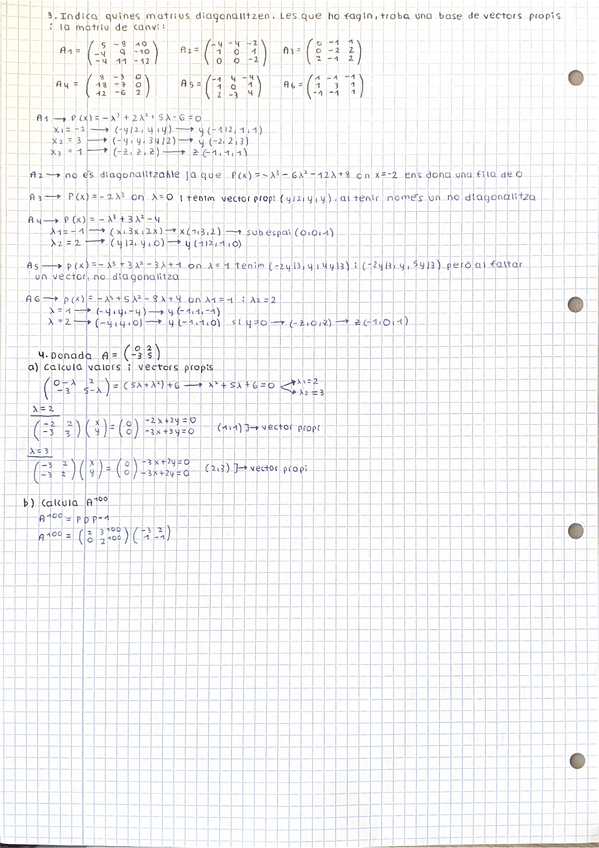 3. Indica quines matrius diagonalitzen. Les que ho fagin, troba una base de vectors propis
i la matriu de canvi:
A1 = ( 5 -8 10 / -4 9 -10 / -4 11 -12 ) A2 = ( -4 -4 -2 / 1 0 1 / 0 0 -2 ) A3 = ( 0 -1 1 / 0 -2 2 / 2 -1 2 )
A4 = ( 8 -3 0 / 18 -7 0 / 12 -6 2 ) A5 = ( -1 4 -4 / 1 0 1 / 2 -3 4 ) A6 = ( 1 -1 -1 / 1 3 1 / -1 -1 1 )
A1 → P(x) = -λ³ + 2λ² + 5λ - 6 = 0
x1 = -2 → (-y/2, y, y) → y(-1/2, 1, 1)
x2 = 3 → (-y, y, 3y/2) → y(-2, 2, 3)
x3 = 1 → (-z, z, z) → z(-1, 1, 1)
A2 → no és diagonalitzable ja que P(x) = -λ³ - 6λ² - 12λ + 8 on x = -2 ens dona una fila de 0
A3 → P(x) = -2λ³ on λ = 0 i tenim vector propi (y/2, y, y), al tenir només un no diagonalitza
A4 → P(x) = -λ³ + 3λ² - 4
λ1 = -1 → (x, 3x, 2x) → x(1, 3, 2) → subespai (0, 0, 1)
λ2 = 2 → (y/2, y, 0) → y(1/2, 1, 0)
A5 → p(x) = -λ³ + 3λ² - 3λ + 1 on λ = 1 tenim (-2y/3, y, 4y/3) i (-2y/3, y, 5y/3) però al faltar
un vector, no diagonalitza
A6 → p(x) = -λ³ + 5λ² - 8λ + 4 on λ1 = 1 i λ2 = 2
λ = 1 → (-y, y, -y) → y(-1, 1, -1)
λ = 2 → (-y, y, 0) → y(-1, 1, 0) si y = 0 → (-z, 0, z) → z(-1, 0, 1)
4. Donada A = ( 0 2 / -3 5 )
a) Calcula valors i vectors propis
( 0-λ 2 / -3 5-λ ) = (5λ + λ²) + 6 → λ² + 5λ + 6 = 0 λ1 = 2 λ2 = 3
λ = 2
( -2 2 / -3 3 ) ( x / y ) = ( 0 / 0 ) -2x + 2y = 0 -3x + 3y = 0 (1, 1) ] → vector propi
λ = 3
( -3 2 / -3 2 ) ( x / y ) = ( 0 / 0 ) -3x + 2y = 0 -3x + 2y = 0 (2, 3) ] → vector propi
b) Calcula A^100
A^100 = P D P-1
A^100 = ( 2 3^100 / 0 2^100 ) ( -3 2 / 1 -1 )